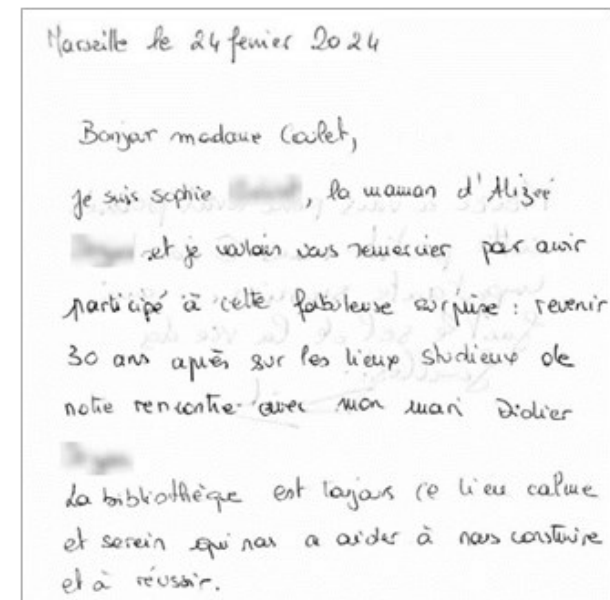 Marseille le 24 fevrier 2024
Bonjour madame Coulet,
je suis sophie , la maman d'Alizeé
et je voulais vous remercier pour avoir
participé à cette fabuleuse surprise : revenir
30 ans après sur les lieux studieux de
notre rencontre avec mon mari Didier
La bibliothèque est toujours ce lieu calme
et serein qui nous a aider à nous construire
et à réussir.